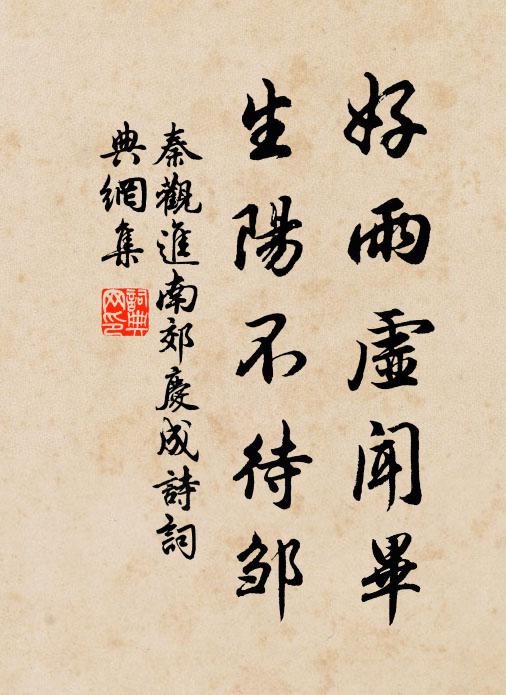 好雨虛闻畢
生陽不待邹
秦觀進南郊慶成詩詞
典網集
詞典网印